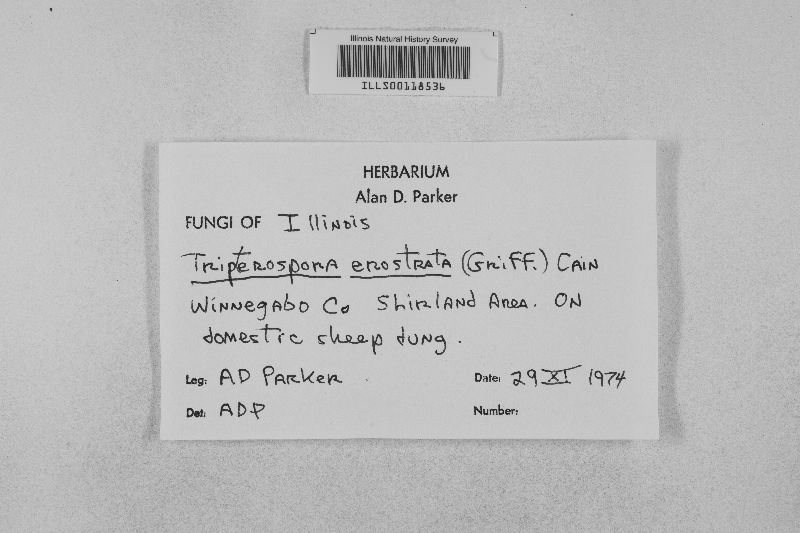 Illinois Natural History Survey
ILLS00118536
HERBARIUM
Alan D. Parker
FUNGI OF Illinois
Tripterospora erostrata (Griff.) Cain
Winnegabo Co Shirland Area. On
domestic sheep dung.
Leg: AD Parker Date: 29 XI 1974
Det: ADP Number: